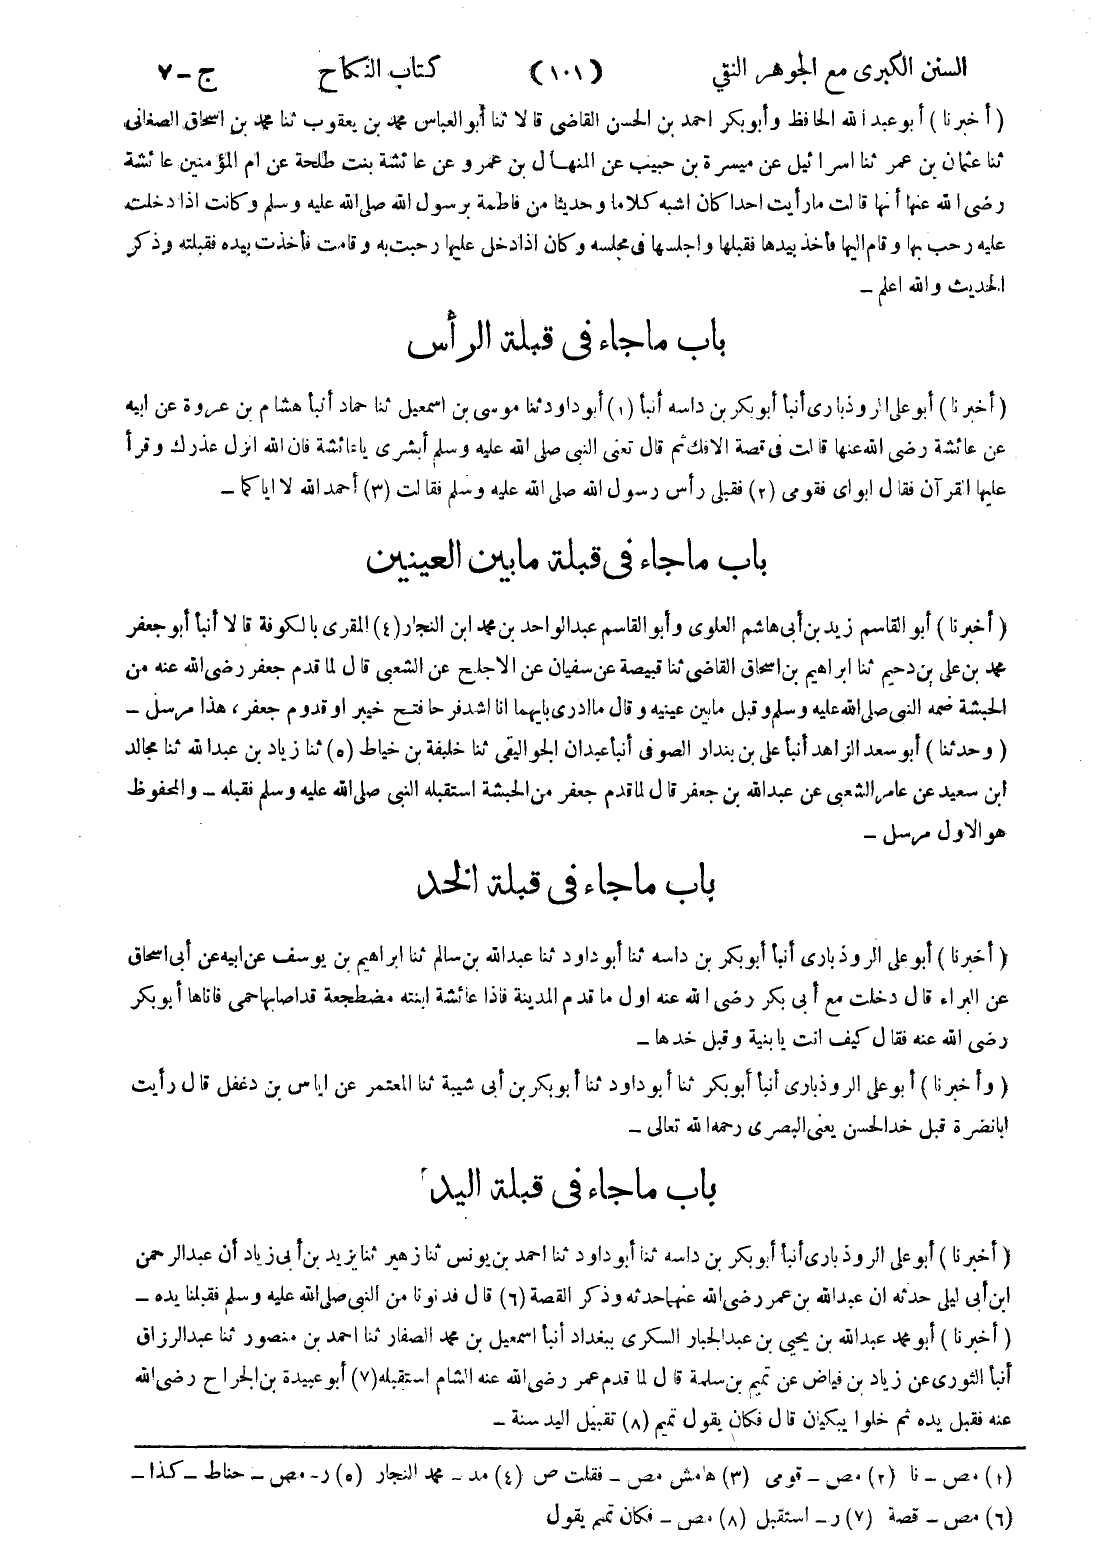 السنن الكبرى مع الجوهر النقي (١٠١) كتاب النكاح ج – ٧
(أخبرنا) أبو عبد الله الحافظ وأبو بكر احمد بن الحسن القاضى قالا ثنا أبو العباس محمد بن يعقوب ثنا محمد بن اسحاق الصغانى
ثنا عثمان بن عمر ثنا اسرائيل عن ميسرة بن حبيب عن المنهال بن عمرو عن عائشة بنت طلحة عن ام المؤمنين عائشة
رضى الله عنها أنها قالت مارأيت احدا كان اشبه كلاما وحديثا من فاطمة برسول الله صلى الله عليه وسلم وكانت اذا دخلت
عليه رحب بها وقام اليها فأخذ بيدها فقبلها واجلسها فى مجلسه وكان اذا دخل عليها رحبت به وقامت فأخذت بيده فقبلته وذكر
الحديث والله اعلم –
باب ماجاء فى قبلة الرأس
(أخبرنا) أبو على الروذبارى أنبأ أبو بكر بن داسه أنبأ (١) أبو داود ثنا موسى بن اسمعيل ثنا حماد أنبأ هشام بن عروة عن ابيه
عن عائشة رضى الله عنها قالت فى قصة الافك ثم قال تعنى النبى صلى الله عليه وسلم أبشرى ياعائشة فان الله انزل عذرك وقرأ
عليها القرآن فقال ابواى فقومى (٢) فقبلى رأس رسول الله صلى الله عليه وسلم فقالت (٣) أحمد الله لا اياكما –
باب ماجاء فى قبلة مابين العينين
(أخبرنا) أبو القاسم زيد بن أبى هاشم العلوى وأبو القاسم عبدالواحد بن محمد ابن النجار (٤) المقرى بالكوفة قالا أنبأ أبو جعفر
محمد بن على بن دحيم ثنا ابراهيم بن اسحاق القاضى ثنا قبيصة عن سفيان عن الاجلح عن الشعبى قال لما قدم جعفر رضى الله عنه من
الحبشة ضمه النبى صلى الله عليه وسلم وقبل مابين عينيه وقال ماادرى بايهما انا اشد فرحا فتح خيبر او قدوم جعفر، هذا مرسل –
(وحدثنا) أبو سعد الزاهد أنبأ على بن بندار الصوفى أنبأ عبدان الجواليقى ثنا خليفة بن خياط (٥) ثنا زياد بن عبدالله ثنا مجالد
ابن سعيد عن عامر الشعبى عن عبدالله بن جعفر قال لماقدم جعفر من الحبشة استقبله النبى صلى الله عليه وسلم فقبله – والمحفوظ
هو الاول مرسل –
باب ماجاء فى قبلة الخد
(أخبرنا) أبو على الروذبارى أنبأ أبو بكر بن داسه ثنا أبو داود ثنا عبدالله بن سالم ثنا ابراهيم بن يوسف عن ابيه عن أبى اسحاق
عن البراء قال دخلت مع أبى بكر رضى الله عنه اول ما قدم المدينة فاذا عائشة ابنته مضطجعة قد اصابها حمى فاتاها أبو بكر
رضى الله عنه فقال كيف انت يا بنية وقبل خدها –
(وأخبرنا) أبو على الروذبارى أنبأ أبو بكر ثنا أبو داود ثنا أبو بكر بن أبى شيبة ثنا المعتمر عن اياس بن دغفل قال رأيت
ابا نضرة قبل خد الحسن يعنى البصرى رحمه الله تعالى –
باب ماجاء فى قبلة اليد
(أخبرنا) أبو على الروذبارى أنبأ أبو بكر بن داسه ثنا أبو داود ثنا احمد بن يونس ثنا زهير ثنا يزيد بن أبى زياد أن عبدالرحمن
ابن أبى ليلى حدثه ان عبدالله بن عمر رضى الله عنهما حدثه وذكر القصة (٦) قال فدنونا من النبى صلى الله عليه وسلم فقبلنا يده –
(أخبرنا) أبو محمد عبدالله بن يحيى بن عبدالجبار السكرى ببغداد أنبأ اسمعيل بن محمد الصفار ثنا احمد بن منصور ثنا عبدالرزاق
أنبأ الثورى عن زياد بن فياض عن تميم بن سلمة قال لما قدم عمر رضى الله عنه الشام استقبله (٧) أبو عبيدة بن الجراح رضى الله
عنه فقبل يده ثم خلوا يبكيان قال فكان يقول تميم (٨) تقبيل اليد سنة –
(١) مص – نا (٢) مص – قومى (٣) هامش مص – فقلت ص (٤) مد – محمد النجار (٥) ر – مص – حناط – كذا –
(٦) مص – قصة (٧) ر – استقبل (٨) مص – فكان تميم يقول